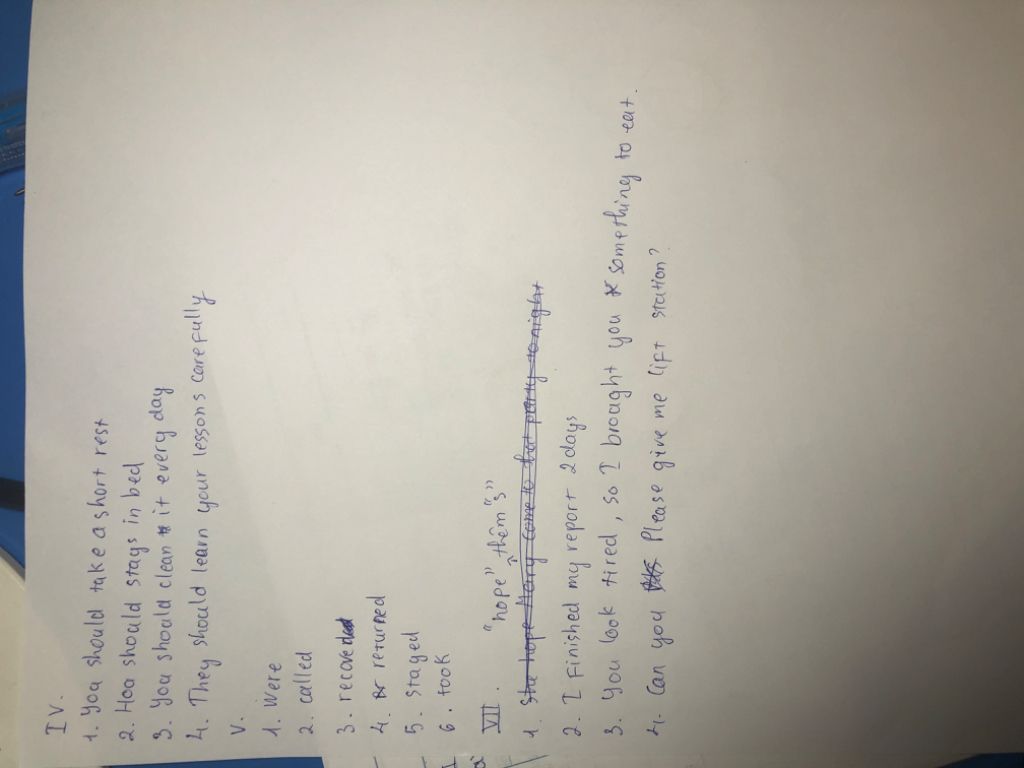 IV.
1. You should take a short rest
2. Hoa should stays in bed
3. You should clean it every day
4. They should learn your lessons carefully
V.
1. Were
2. called
3. recove
4. returned
5. stayed
6. took
VII.
"hope" thêm "s"
1. She hope Mary come to that party tonight
2. I Finished my report 2 days
3. You look tired, so I brought you something to eat.
4. Can you Please give me lift station?